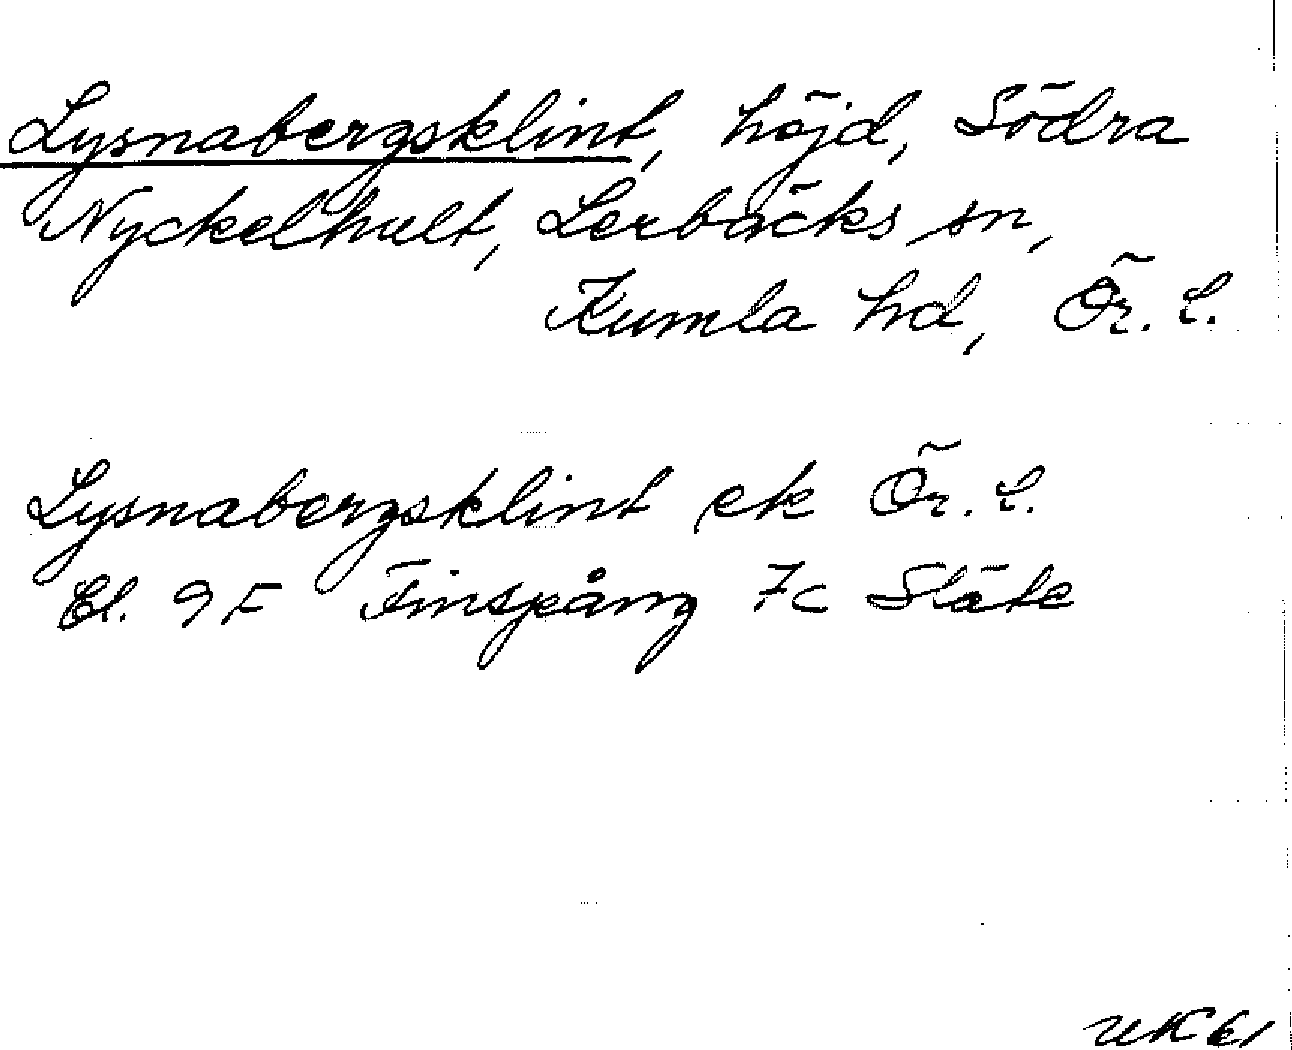 Lysnabergsklint, höjd, Södra
Nyckelhult, Lerbäcks sn,
Kumla hd, Ör. l.
Lysnabergsklint ek Ör. l.
Bl. 9F Finspång 7c Släte